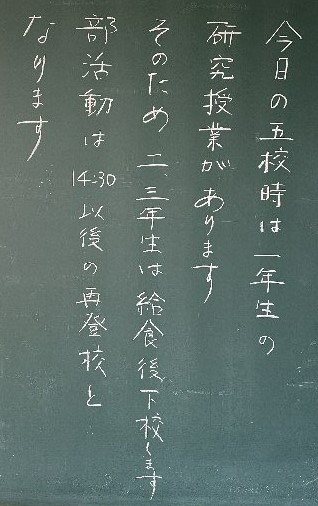 今日の五校時は一年生の
研究授業があります
そのため二、三年生は給食後、下校します
部活動は14:30以後の再登校と
なります